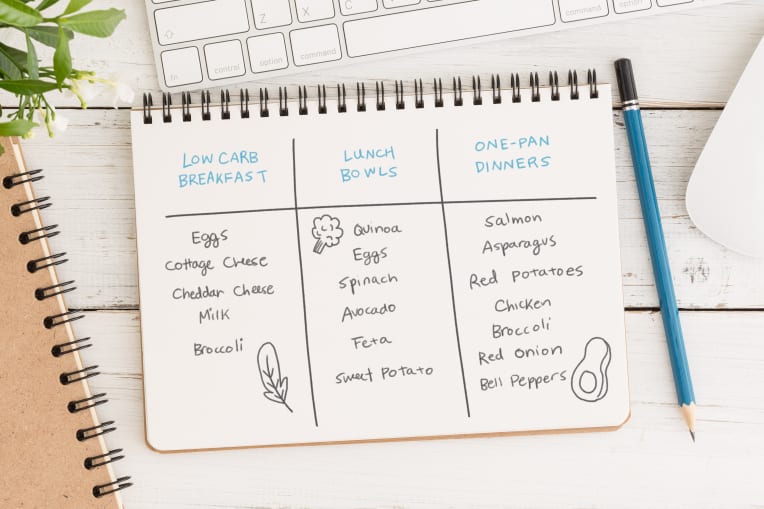 Z
X
C
fn
control
option
command
command
option
LOW CARB
BREAKFAST
Eggs
Cottage Cheese
Cheddar Cheese
Milk
Broccoli
LUNCH
BOWLS
Quinoa
Eggs
Spinach
Avocado
Feta
Sweet Potato
ONE-PAN
DINNERS
Salmon
Asparagus
Red Potatoes
Chicken
Broccoli
Red Onion
Bell Peppers